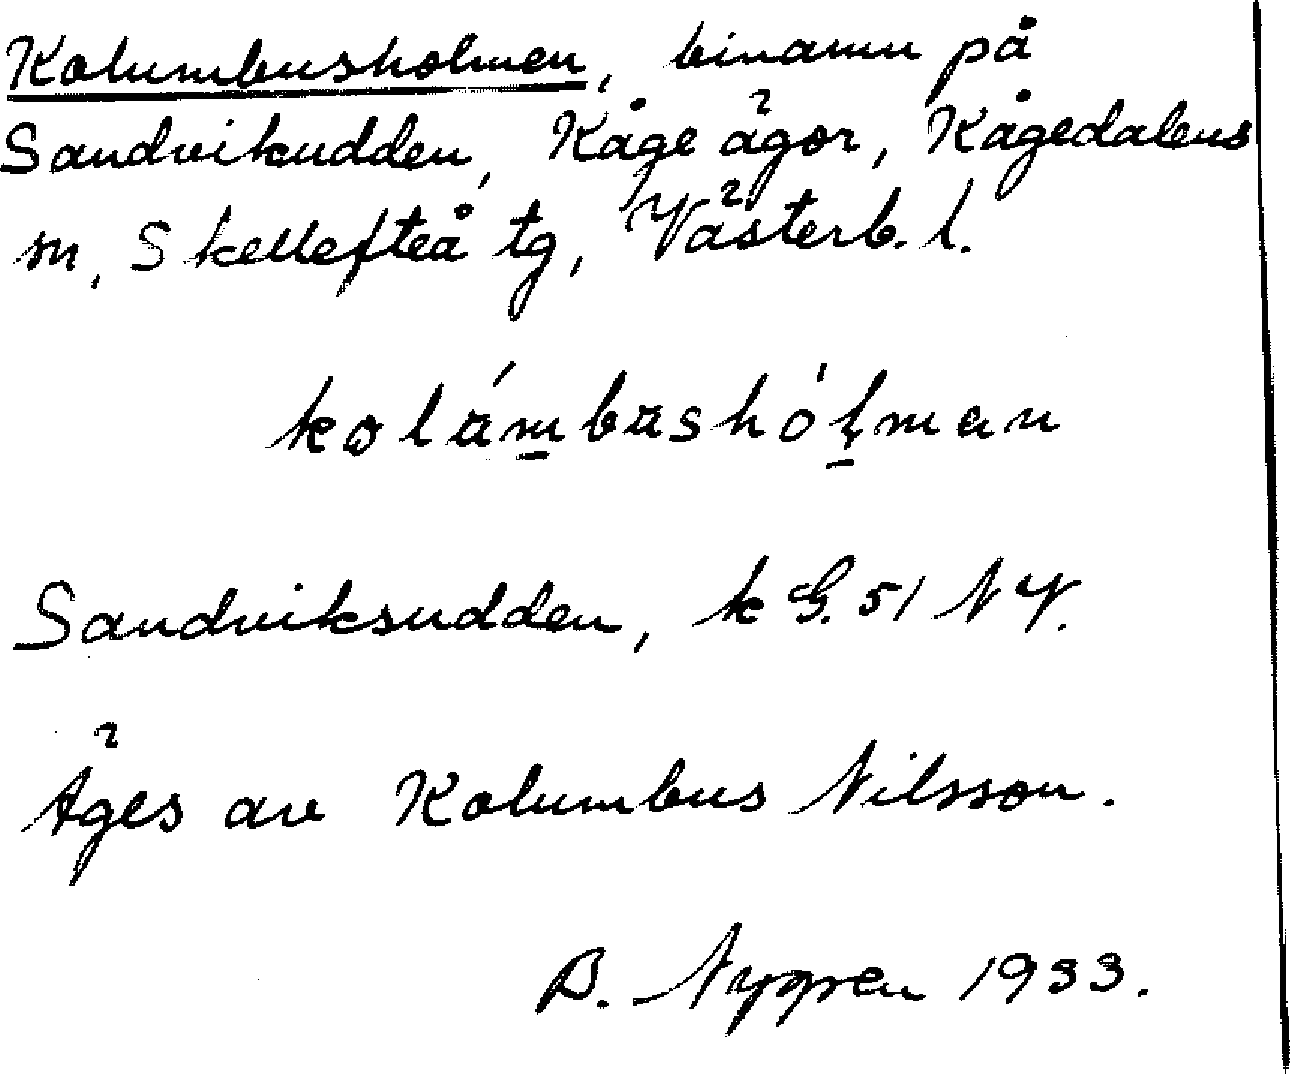 Kolumbusholmen, binamn på
Sandvikudden, Kåge ägor, Kågedalens
sn, Skellefteå tg, Västerb. l.
Sandviksudden, k G. 51 NV.
Äges av Kolumbus Nilsson.
B. Nygren 1933.